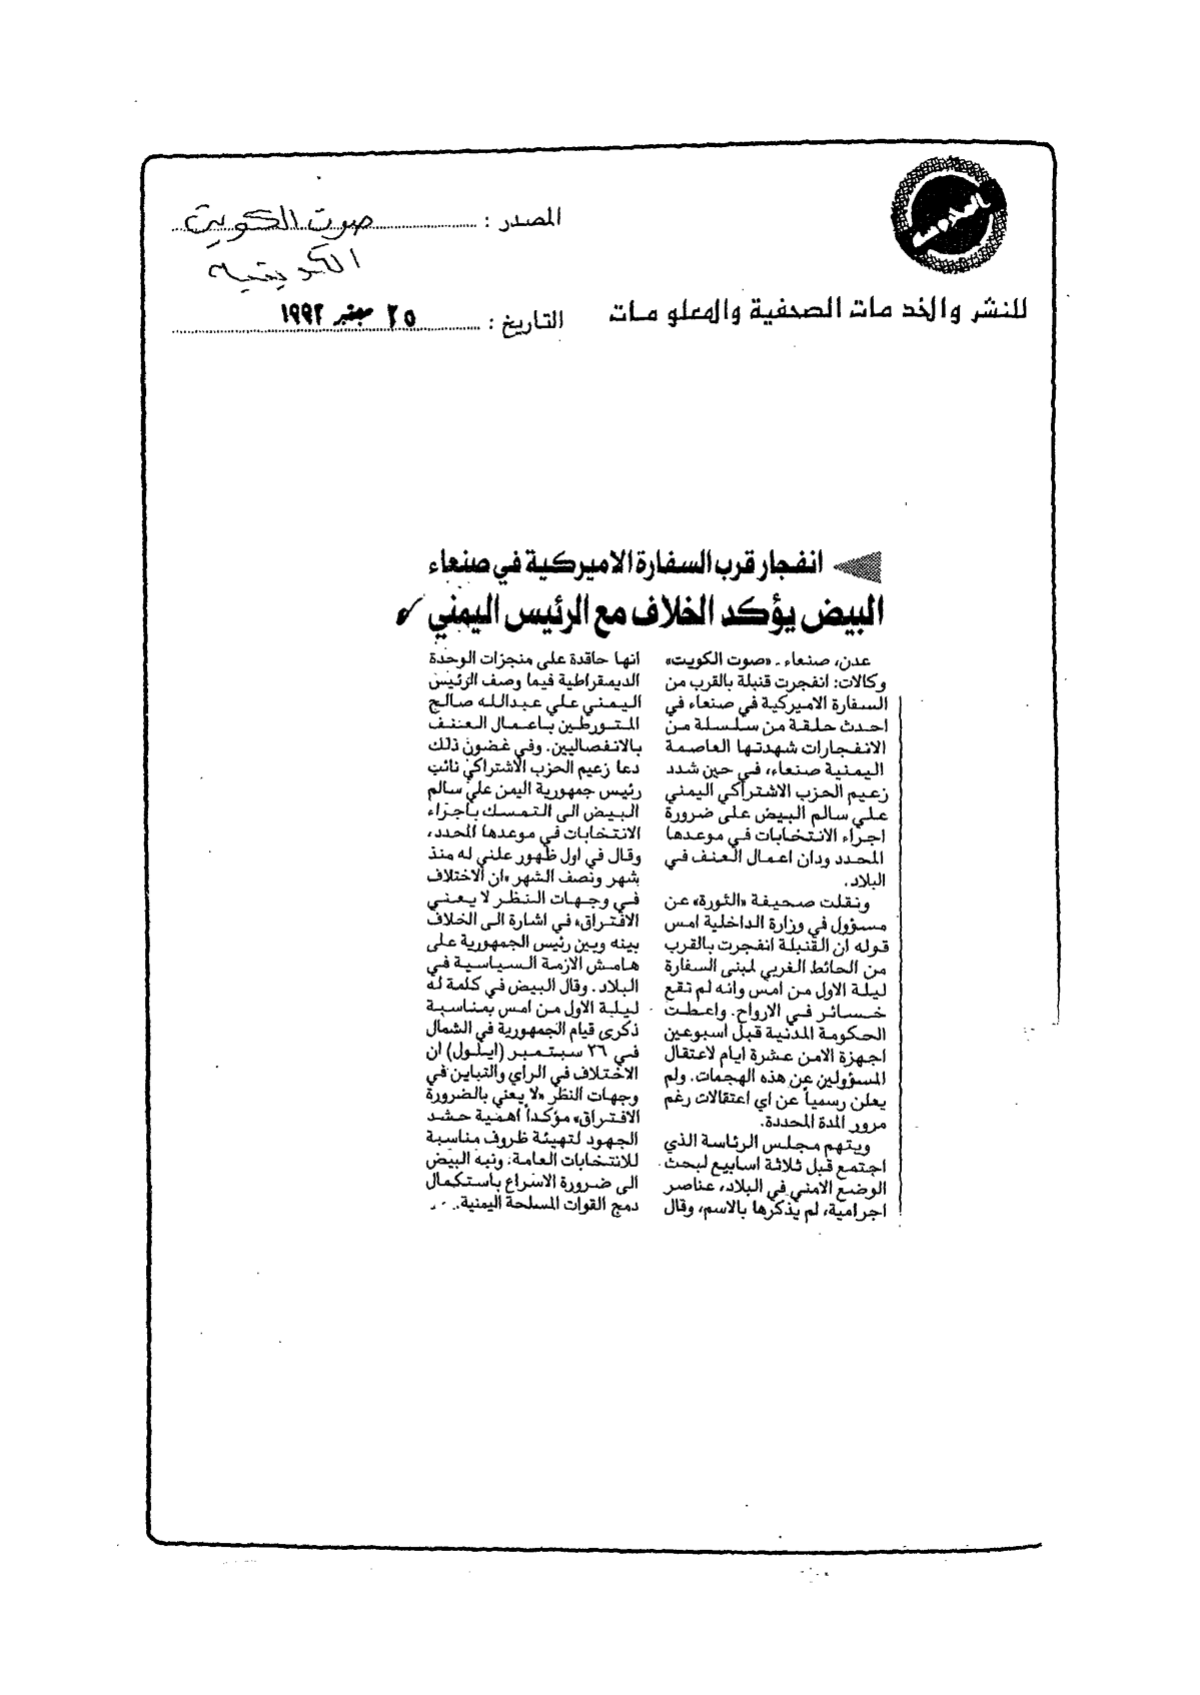 المصدر : صوت الكويت
الكويتية
للنشر والخدمات الصحفية والمعلومات
التاريخ : ٢٥ سبتمبر ١٩٩٢
انفجار قرب السفارة الاميركية في صنعاء
البيض يؤكد الخلاف مع الرئيس اليمني
عدن، صنعاء ـ «صوت الكويت»
وكالات: انفجرت قنبلة بالقرب من
السفارة الاميركية في صنعاء في
احدث حلقة من سلسلة من
الانفجارات شهدتها العاصمة
اليمنية صنعاء، في حين شدد
زعيم الحزب الاشتراكي اليمني
علي سالم البيض على ضرورة
اجراء الانتخابات في موعدها
المحدد ودان اعمال العنف في
البلاد.
ونقلت صحيفة «الثورة» عن
مسؤول في وزارة الداخلية امس
قوله ان القنبلة انفجرت بالقرب
من الحائط الغربي لمبنى السفارة
ليلة الاول من امس وانه لم تقع
خسائر في الارواح. واعطت
الحكومة المدنية قبل اسبوعين
اجهزة الامن عشرة ايام لاعتقال
المسؤولين عن هذه الهجمات. ولم
يعلن رسمياً عن اي اعتقالات رغم
مرور المدة المحددة.
ويتهم مجلس الرئاسة الذي
اجتمع قبل ثلاثة اسابيع لبحث
الوضع الامني في البلاد، عناصر
اجرامية، لم يذكرها بالاسم، وقال
انها حاقدة على منجزات الوحدة
الديمقراطية فيما وصف الرئيس
اليمني علي عبدالله صالح
المتورطين باعمال العنف
بالانفصاليين. وفي غضون ذلك
دعا زعيم الحزب الاشتراكي نائب
رئيس جمهورية اليمن علي سالم
البيض الى التمسك باجراء
الانتخابات في موعدها المحدد،
وقال في اول ظهور علني له منذ
شهر ونصف الشهر «ان الاختلاف
في وجهات النظر لا يعني
الافتراق» في اشارة الى الخلاف
بينه وبين رئيس الجمهورية على
هامش الازمة السياسية في
البلاد. وقال البيض في كلمة له
ليلية الاول من امس بمناسبة
ذكرى قيام الجمهورية في الشمال
في ٢٦ سبتمبر (ايلول) ان
الاختلاف في الراي والتباين في
وجهات النظر «لا يعني بالضرورة
الافتراق» مؤكداً اهمية حشد
الجهود لتهيئة ظروف مناسبة
للانتخابات العامة، ونبه البيض
الى ضرورة الاسراع باستكمال
دمج القوات المسلحة اليمنية.